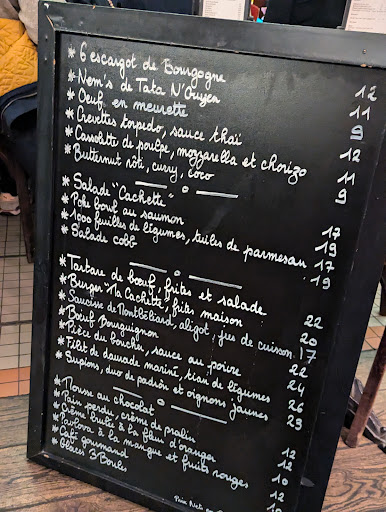 * 6 escargot de Bourgogne 12
* Nem's de Tata N'Guyen 11
* Oeuf en meurette 9
* Crevettes torpido, sauce thaï 12
* Cassolette de poulpe, mozzarella et chorizo 11
* Butternut rôti, curry, coco 9
* Salade "Cachette" 17
* Poke bowl au saumon 19
* 1000 feuilles de légumes, tuiles de parmesan 17
* Salade cobb 19
* Tartare de bœuf, frites et salade 22
* Burger "Ma Cachette", frites maison 20
* Saucisse de Montbéliard, aligot, jus de cuisson 17
* Bœuf Bourguignon 22
* Pièce du boucher, sauce au poivre 24
* Filet de daurade mariné, tian de légumes 26
* Supions, duo de padròn et oignons jaunes 23
* Mousse au chocolat 12
* Pain perdu, crème de pralin 12
* Crème brulée à la fleur d'oranger 10
* Pavlova à la mangue et fruits rouges 12
* Café gourmand 10
* Glaces 3 Boules
Prix Nets